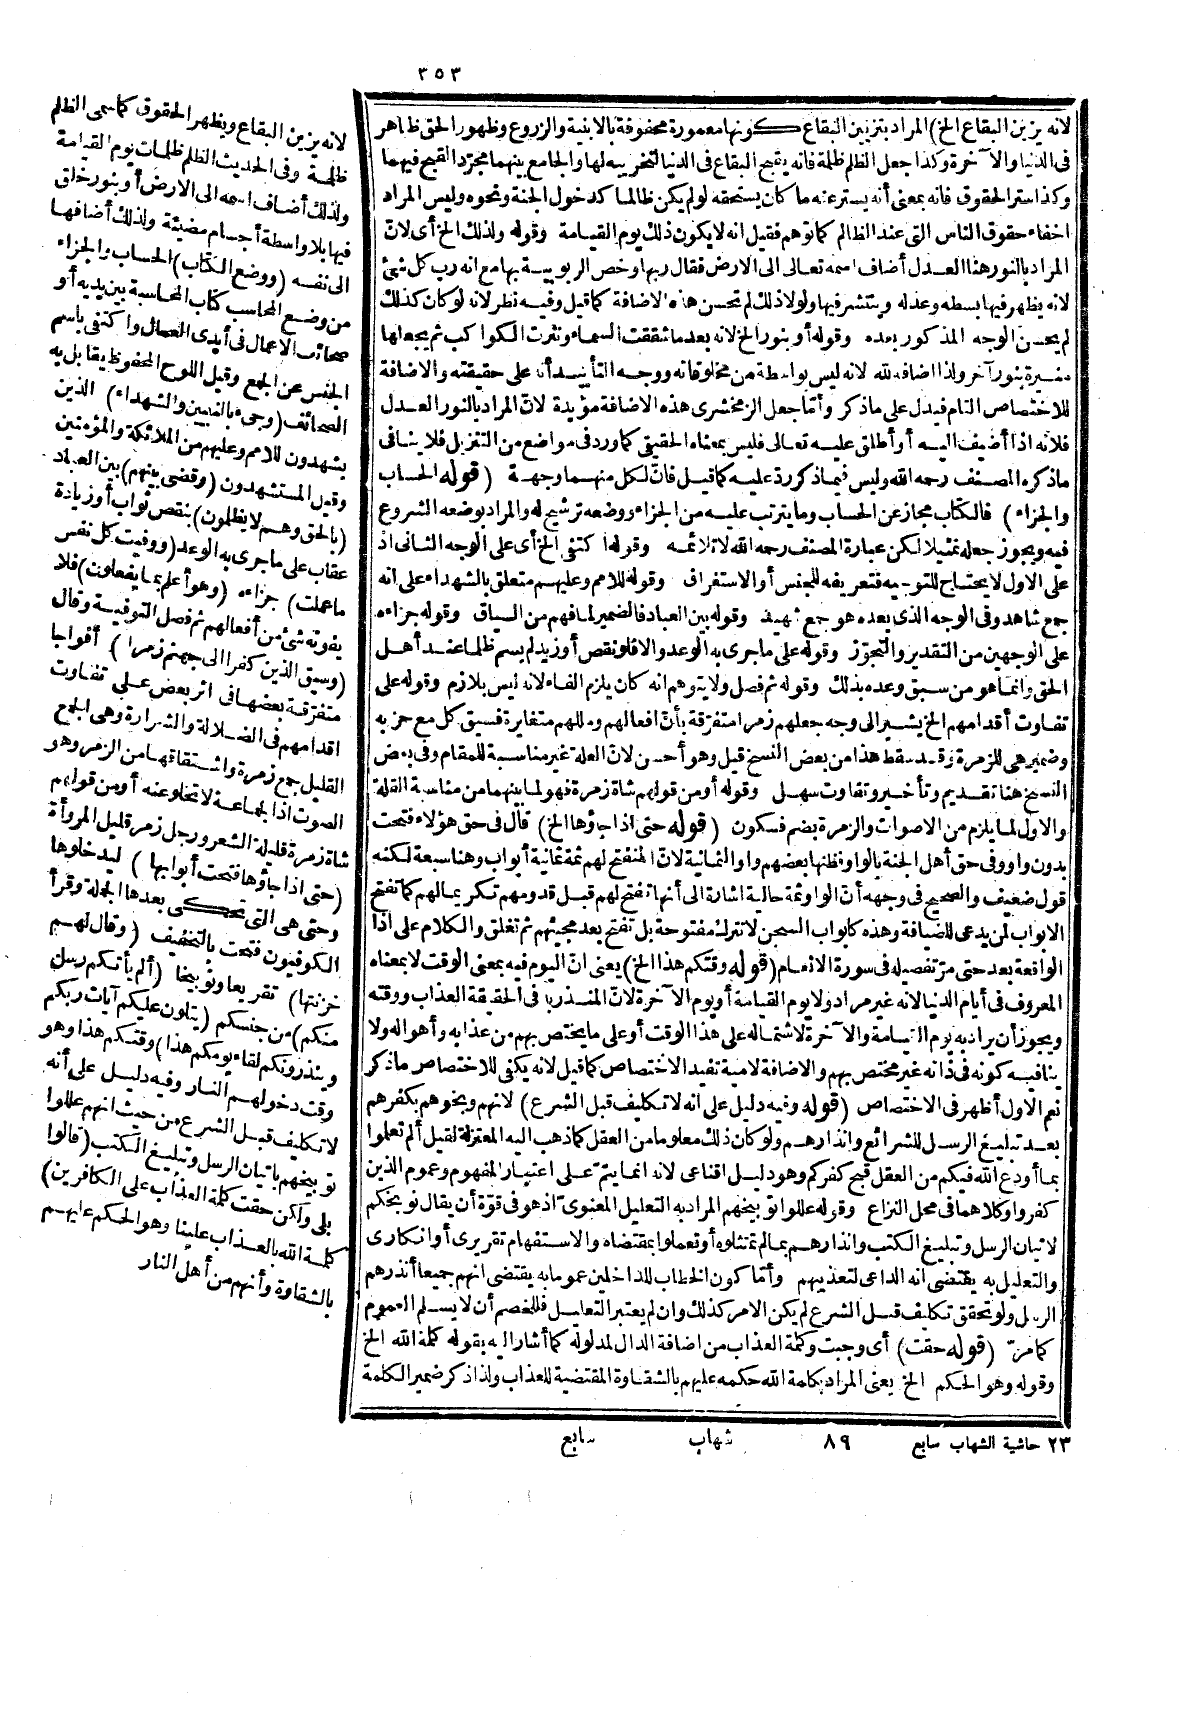 ٣٥٣
لانه يزين البقاع الخ) المراد بتزيين البقاع كونها معمورة محفوفة بالابنية والزروع وظهور الحق ظاهر
فى الدنيا والآخرة وكذا جعل الظلم ظلمة فانه يقبح البقاع فى الدنيا لتخريبه لها والجامع بينهما مجرّد القبح فيهما
وكذا ستر الحقوق فانه بمعنى أنه يستر عنه ما كان يستحقه لو لم يكن ظالما كدخول الجنة ونحوه وليس المراد
اخفاء حقوق الناس التى عند الظالم كما توهم فقيل انه لا يكون ذلك يوم القيامة وقوله ولذلك الخ أى لانّ
المراد بالنور هنا العدل أضاف اسمه تعالى الى الارض فقال ربها وخص الربوبية بها مع انه رب كل شئ
لانه يظهر فيها بسطه وعدله وينتشر فيها ولولا ذلك لم تحسن هذه الاضافة كما قيل وفيه نظر لانه لو كان كذلك
لم يحسن الوجه المذكور بعده وقوله أو بنور الخ لانه بعد ما شققت السماء ونثرت الكواكب ثم يجعلها
منيرة بنور آخر ولذا اضافه لله لانه ليس بواسطة من مخلوقاته ووجه التأييد أنه على حقيقته والاضافة
للاختصاص التام فيدل على ما ذكر وأمّا جعل الزمخشرى هذه الاضافة مؤيدة لانّ المراد بالنور العدل
فلانه اذا أضيف اليه أو أطلق عليه تعالى فليس بمعناه الحقيقى كما ورد فى مواضع من التنزيل فلا ينافى
ما ذكره المصنف رحمه الله وليس فيما ذكر ردّ عليه كما قيل فانّ لكل منهما وجهة (قوله الحساب
والجزاء) فالكتاب مجاز عن الحساب وما يترتب عليه من الجزاء ووضعه ترشيح له والمراد بوضعه الشروع
فيه ويجوز جعله تمثيلا لكن عبارة المصنف رحمه الله لا تلائمه وقوله اكتفى الخ أى على الوجه الثانى اذ
على الاول لا يحتاج للتوجيه فتعريفه للجنس أو الاستغراق وقوله للامم وعليهم متعلق بالشهداء على انه
جمع شاهد وفى الوجه الذى بعده هو جمع شهيد وقوله بين العباد فالضمير لما فهم من السياق وقوله جزاءه
على الوجهين من التقدير والتجوّز وقوله على ما جرى به الوعد والا فلو نقص أو زيد لم يسم ظلما عند أهل
الحق وانما هو من سبق وعده بذلك وقوله ثم فصل ولا يتوهم انه كان يلزم الفاء لانه ليس بلازم وقوله على
تفاوت أقدامهم الخ يشير الى وجه جعلهم زمرا متفرّقة بأنّ افعالهم ومللهم متغايرة فسيق كل مع حزبه
وضمير هى للزمرة وقد سقط هذا من بعض النسخ قيل وهو أحسن لانّ العلة غير مناسبة للمقام وفى بعض
النسخ هنا تقديم وتأخير وتفاوت سهل وقوله أو من قولهم شاة زمرة فهو لما بينهما من مناسبة القلة
والاول لما يلزم من الاصوات والزمرة بضم فسكون (قوله حتى اذا جاؤها الخ) قال فى حق هؤلاء فتحت
بدون واو وفى حق أهل الجنة بالواو وظنها بعضهم واو الثمانية لانّ المنفتح لهم ثمة ثمانية أبواب وهنا سبعة لكنه
قول ضعيف والصحيح فى وجهه أنّ الواو ثمة حالية اشارة الى أنها تفتح لهم قبل قدومهم تكريما لهم كما تفتح
الابواب لمن يدعى للضيافة وهذه كابواب السجن لا تترك مفتوحة بل تفتح بعد مجيئهم ثم تغلق والكلام على اذا
الواقعة بعد حتى مرّ تفصيله فى سورة الانعام (قوله وقتكم هذا الخ) يعنى انّ اليوم فيه بمعنى الوقت لا بمعناه
المعروف فى أيام الدنيا لانه غير مراد ولا يوم القيامة أو يوم الآخرة لانّ المنذر به فى الحقيقة العذاب ووقته
ويجوز أن يراد به يوم القيامة والآخرة لاشتماله على هذا الوقت أو على ما يختص بهم من عذابه وأهواله ولا
ينافيه كونه فى ذاته غير مختص بهم والاضافة لامية تفيد الاختصاص كما قيل لانه يكفى للاختصاص ما ذكر
نعم الاول أظهر فى الاختصاص (قوله وفيه دليل على انه لا تكليف قبل الشرع) لانهم وبخوهم بكفرهم
بعد تبليغ الرسل للشرائع وانذارهم ولو كان ذلك معلوما من العقل كما ذهب اليه المعتزلة لقيل ألم تعلموا
بما أودع الله فيكم من العقل قبح كفركم وهو دليل اقناعى لانه انما يتمّ على اعتبار المفهوم وعموم الذين
كفروا وكلاهما فى محل النزاع وقوله عللوا توبيخهم المراد به التعليل المعنوىّ اذ هو فى قوّة أن يقال نوبخكم
لاتيان الرسل وتبليغ الكتب وانذارهم بما لم تمتثلوه أو تعملوا بمقتضاه والاستفهام تقريرى أو انكارى
والتعليل به يقتضى انه الداعى لتعذيبهم وأمّا كون الخطاب للداخلين عموما به يقتضى انهم جميعا أنذرهم
الرسل ولو تحقق تكليف قبل الشرع لم يكن الامر كذلك وان لم يعتبر التعليل فللخصم أن لا يسلم العموم
كما مرّ (قوله حقت) أى وجبت وكلمة العذاب من اضافة الدال لمدلوله كما أشار اليه بقوله كلمة الله الخ
وقوله وهو الحكم الخ يعنى المراد بكلمة الله حكمه عليهم بالشقاوة المقتضية للعذاب ولذا ذكر ضمير الكلمة
لانه يزين البقاع ويظهر الحقوق كما سمى الظلم
ظلمة وفى الحديث الظلم ظلمات يوم القيامة
ولذلك أضاف اسمه الى الارض أو بنور خلق
فيها بلا واسطة أجسام مضيئة ولذلك أضافها
الى نفسه (ووضع الكتاب) الحساب والجزاء
من وضع المحاسب كتاب المحاسبة بين يديه أو
صحائف الاعمال فى أيدى العمال واكتفى باسم
الجنس عن الجمع وقيل اللوح المحفوظ يقابل به
الصحائف (وجىء بالنبيين والشهداء) الذين
يشهدون للامم وعليهم من الملائكة والمؤمنين
وقيل المستشهدون (وقضى بينهم) بين العباد
(بالحق وهم لا يظلمون) بنقص ثواب أو زيادة
عقاب على ما جرى به الوعد (ووفيت كل نفس
ما عملت) جزاءه (وهو أعلم بما يفعلون) فلا
يفوته شئ من أفعالهم ثم فصل التوفية وقال
(وسيق الذين كفروا الى جهنم زمرا) أفواجا
متفرّقة بعضها فى اثر بعض على تفاوت
اقدامهم فى الضلالة والشرارة وهى الجمع
القليل جمع زمرة واشتقاقها من الزمر وهو
الصوت اذ الجماعة لا تخلو عنه أو من قولهم
شاة زمرة قليلة الشعر ورجل زمر قليل المروأة
(حتى اذا جاؤها فتحت أبوابها) ليدخلوها
وحتى هى التى تحكى بعدها الجملة وقرأ
الكوفيون فتحت بالتخفيف (وقال لهم
خزنتها) تقريعا وتوبيخا (ألم يأتكم رسل
منكم) من جنسكم (يتلون عليكم آيات ربكم
وينذرونكم لقاء يومكم هذا) وقتكم هذا وهو
وقت دخولهم النار وفيه دليل على أنه
لا تكليف قبل الشرع من حيث انهم عللوا
توبيخهم باتيان الرسل وتبليغ الكتب (قالوا
بلى ولكن حقت كلمة العذاب على الكافرين)
كلمة الله بالعذاب علينا وهو الحكم عليهم
بالشقاوة وأنهم من أهل النار
٢٣ حاشية الشهاب سابع ٨٩ شهاب سابع